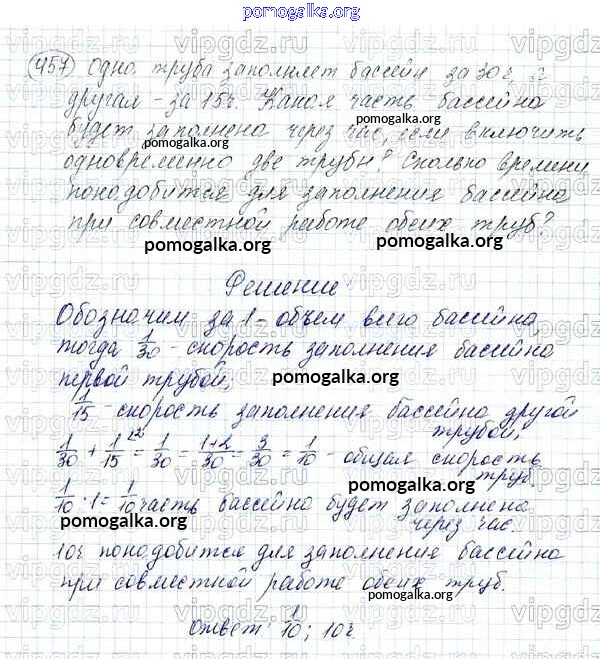 pomogalka.org
457 Одна труба заполняет бассейн за 30 г, а
другая - за 15 г. Какая часть бассейна
будет заполнена через час, если включить
одновременно две трубы? Сколько времени
понадобится для заполнения бассейна
при совместной работе обеих труб?
pomogalka.org pomogalka.org
Решение
Обозначим за 1 - объем всего бассейна,
тогда 1/30 - скорость заполнения бассейна
первой трубой,
pomogalka.org
1/15 - скорость заполнения бассейна другой
трубой,
1/30 + 1/15 = 1/30 = 1+2/30 = 3/30 = 1/10 - общая скорость
труб.
pomogalka.org
1/10 · 1 = 1/10 часть бассейна будет заполнена
через час.
pomogalka.org
10 г понадобится для заполнения бассейна
при совместной работе обеих труб.
pomogalka.org pomogalka.org
Ответ: 1/10; 10 г.